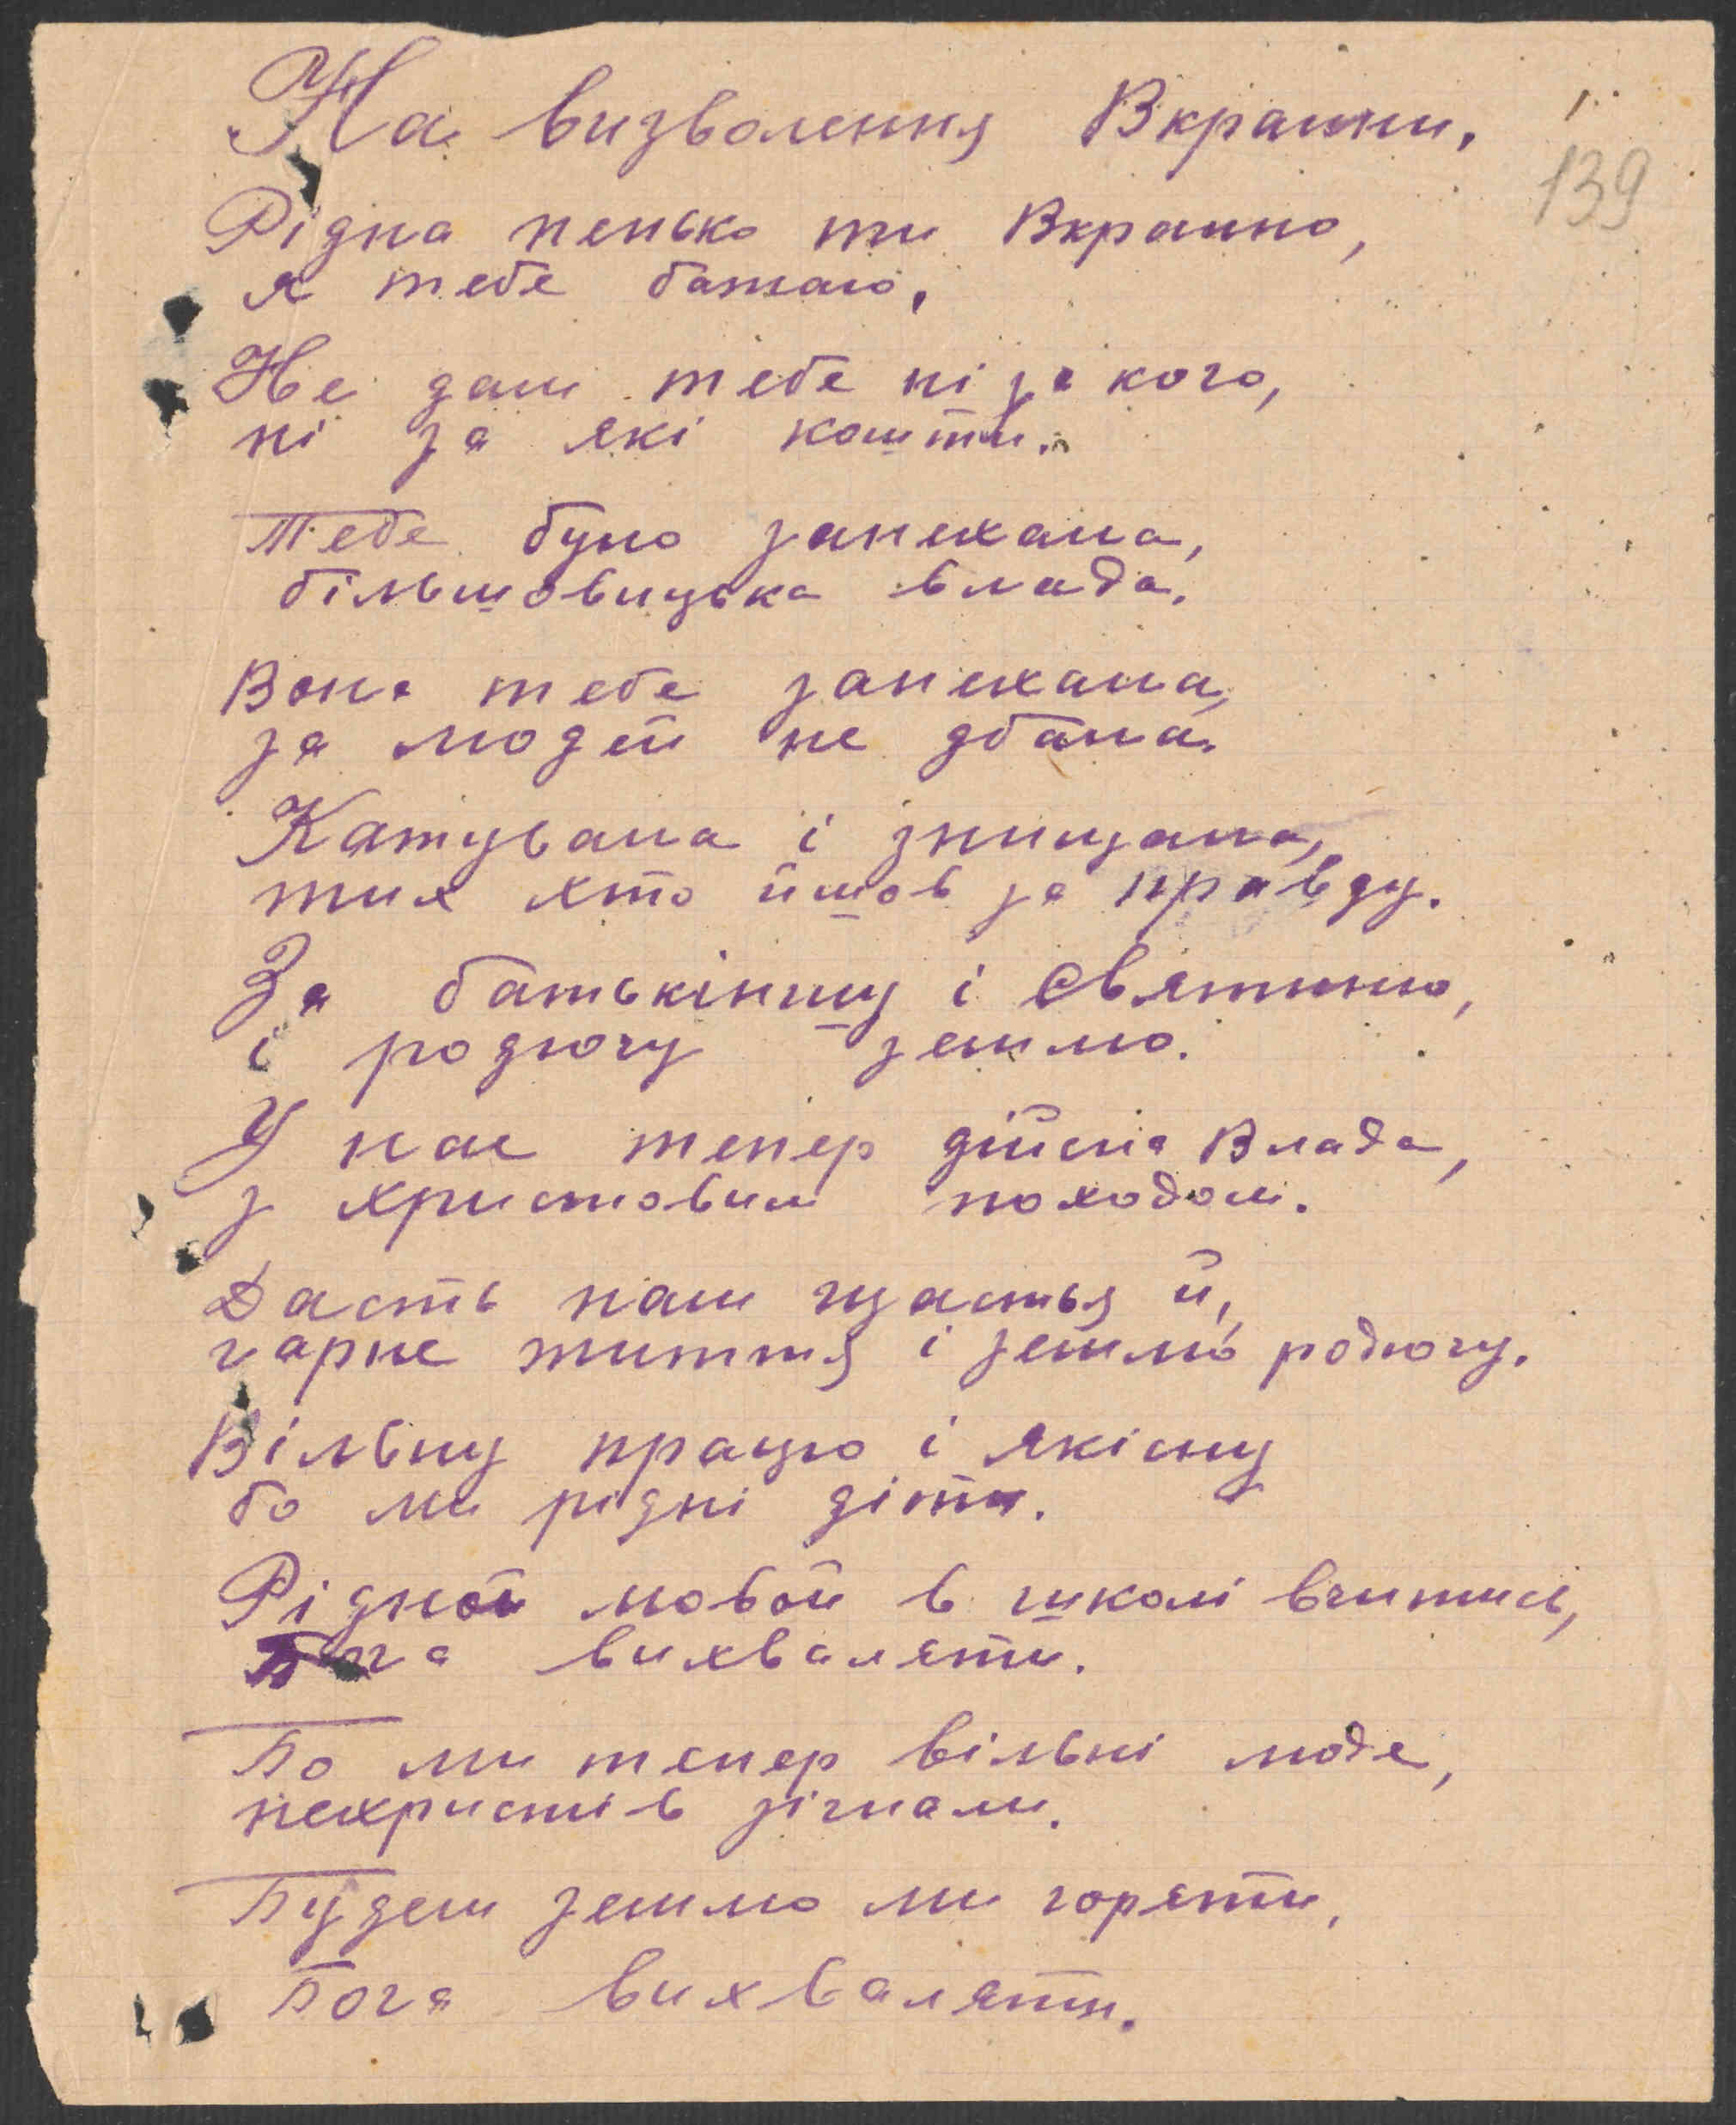 На визволення Вкраини.
139
Рідна ненько ти Вкраино,
я тебе бажаю,
Не дам тебе ні за кого,
ні за які кошти.
Тебе було занехала,
більшовицька влада.
Вона тебе занехала,
за людей не дбала.
Катувала і знищала,
тих хто йшов за правду.
За батьківшну і Святиню,
і родючу землю.
У нас тепер дійсна Влада,
з христовим походом.
Дасть нам щастья й,
гарне життя і землю родючу.
Вільну працю і якісну
бо ми рідні діти.
Рідной мовой в школі вчитись,
Бога вихваляти.
Бо ми тепер вільні люде,
нехристів зігнали.
Будем землю ми горяти,
Бога вихваляти.